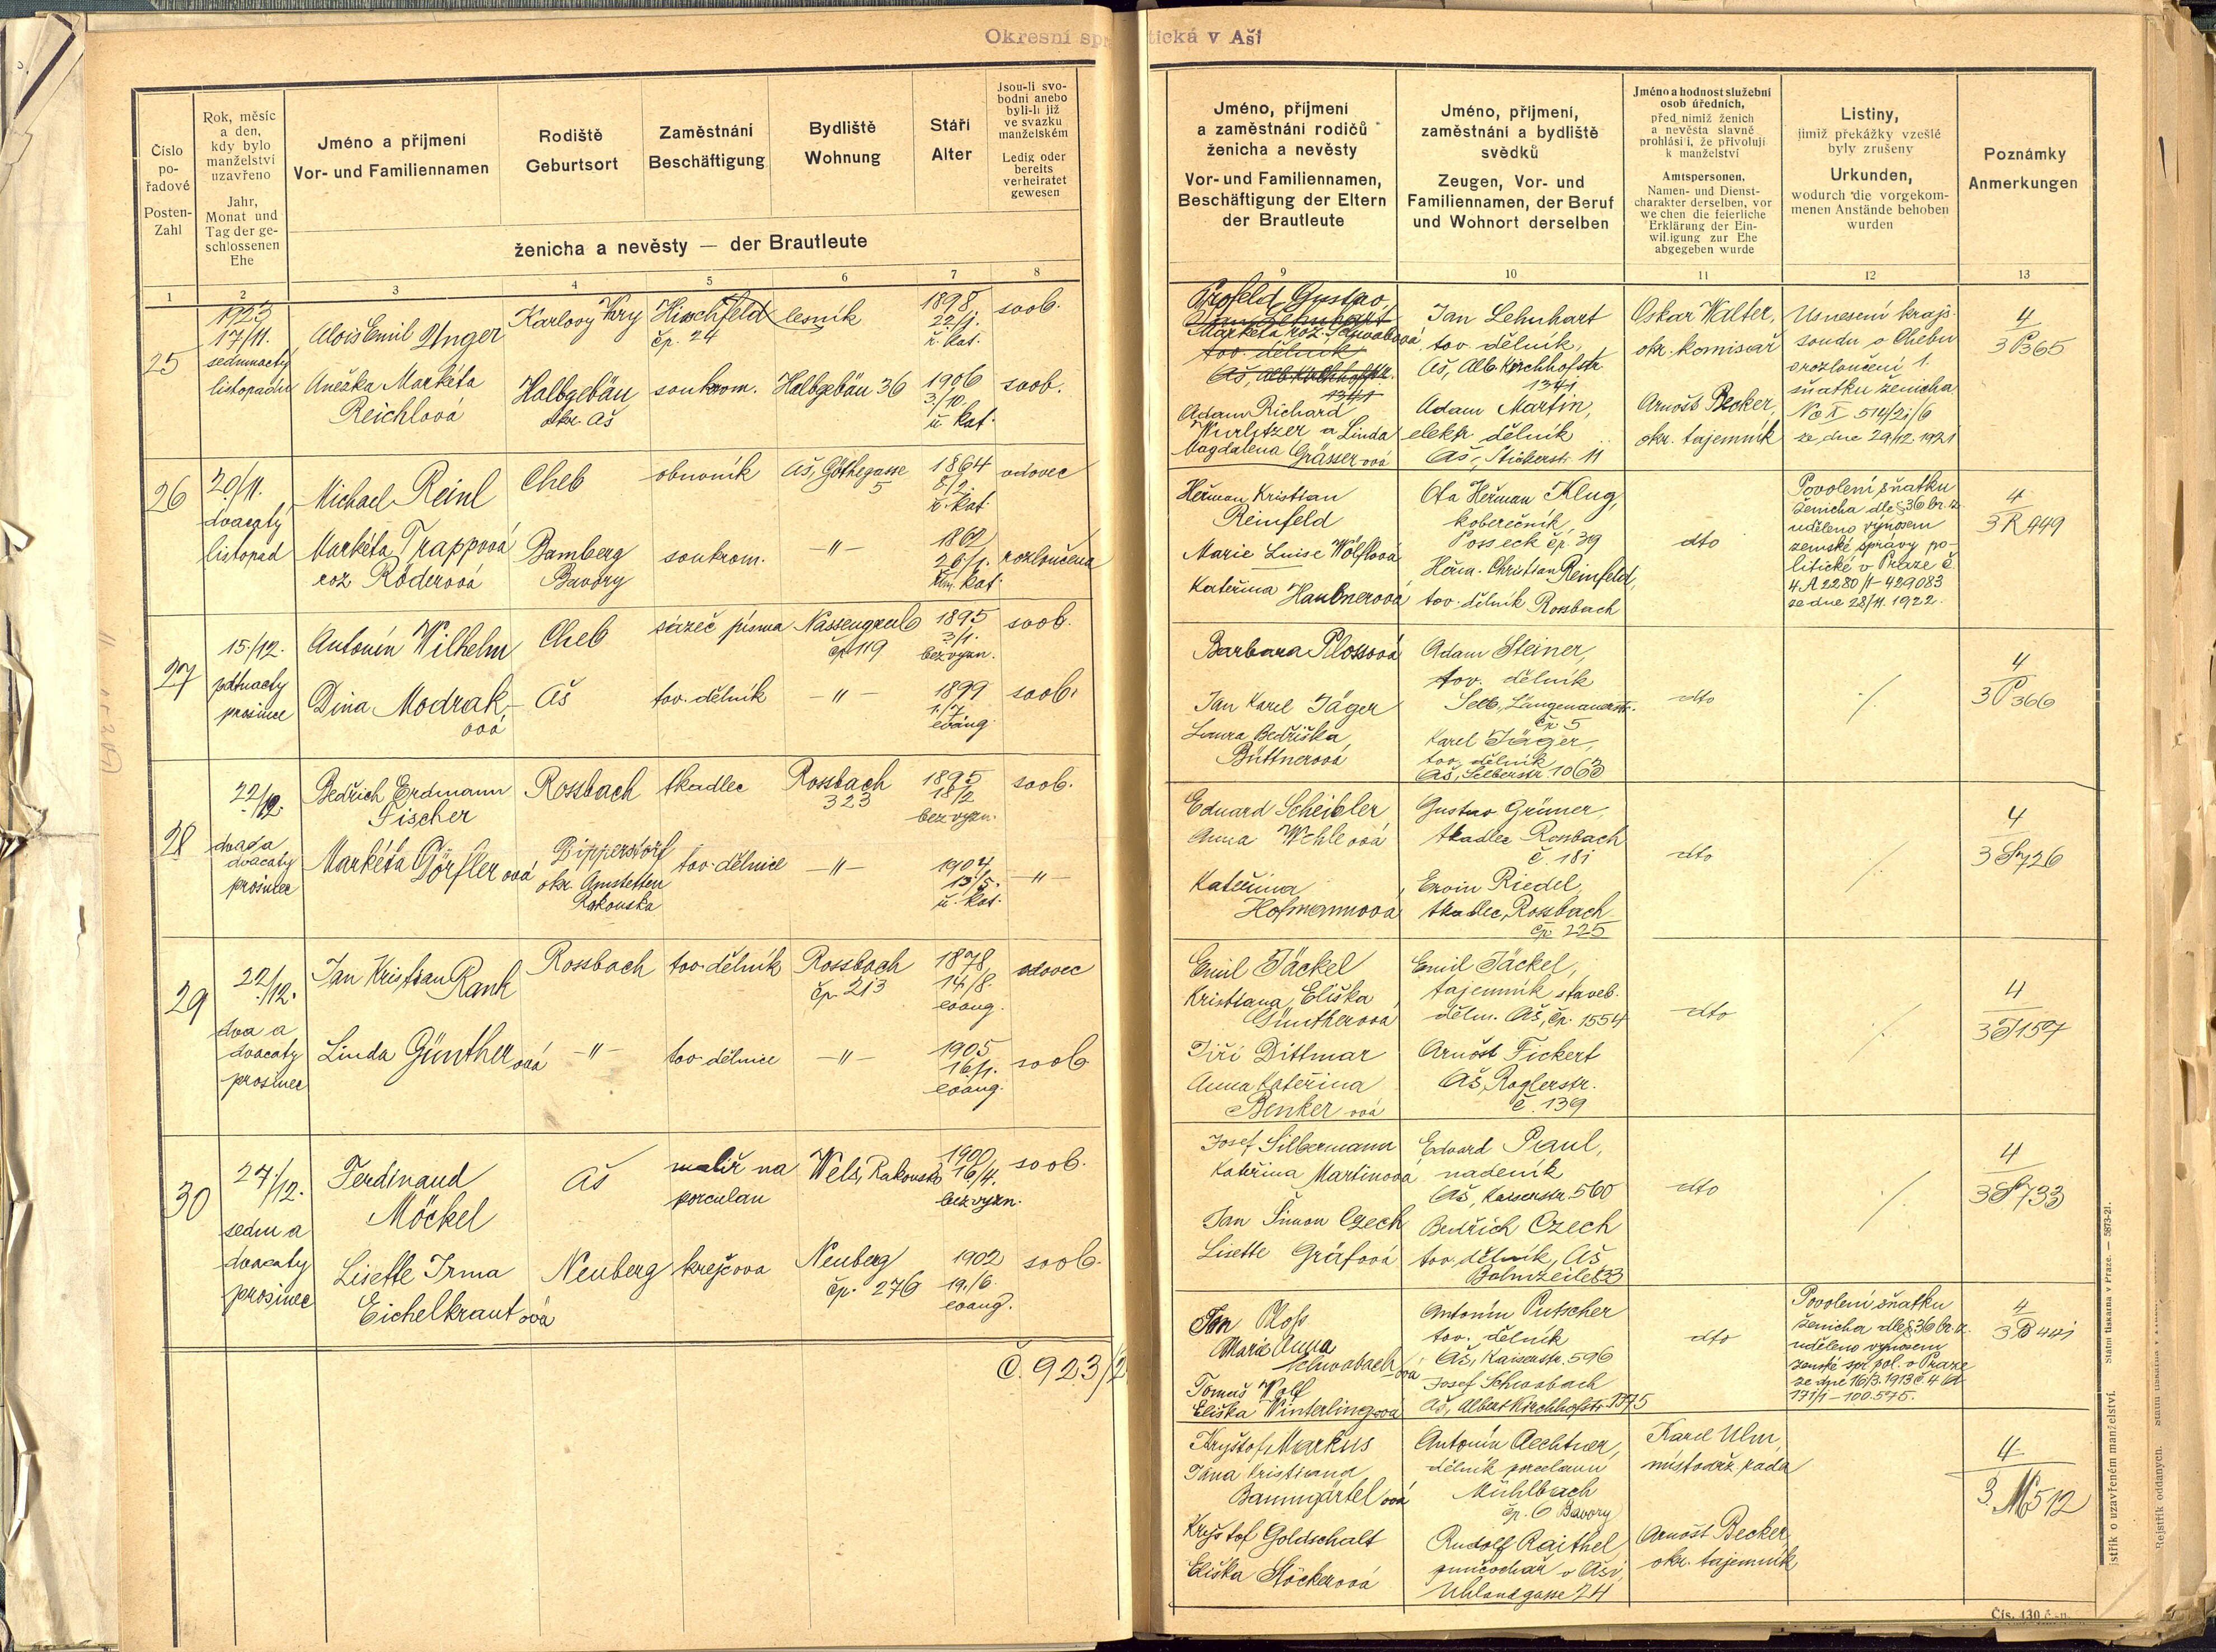 Okresní spr
tická v Aši
Číslo po-řadové
Posten-Zahl
Rok, měsíc a den, kdy bylo manželství uzavřeno
Jahr, Monat und Tag der ge-schlossenen Ehe
Jméno a příjmení
Vor- und Familiennamen
Rodiště
Geburtsort
Zaměstnání
Beschäftigung
Bydliště
Wohnung
Stáří
Alter
Jsou-li svo-bodni anebo byli-li již ve svazku manželském
Ledig oder bereits verheiratet gewesen
ženicha a nevěsty — der Brautleute
1 2 3 4 5 6 7 8
1923
17/11.
25 sedmnáctý
listopadu
Alois Emil Unger
Karlovy Vary
Hirschfeld
čp. 24
lesník
1898
22/1.
ř. kat.
svob.
Anežka Markéta
Reichlová
Halbgebäu
okr. Aš
soukrom.
Halbgebäu 36
1906
3./10.
ř. kat.
svob.
26
20/11.
dvacátý
listopad
Michael Reinl
Cheb
obuvník
Aš, Göthegasse
5
1864
8./2.
ř. kat.
vdovec
Markéta Trappová
roz. Röderová
Bamberg
Bavory
soukrom.
-"-
26/1.
řím. kat.
rozloučená
27
15./12.
patnáctý
prosinec
Antonín Wilhelm
Cheb
sázeč písma
Nassengrub
čp. 119
1895
3/1.
bez vyzn.
svob.
Dina Modrak-
ová
Aš
tov. dělník
-"-
1899
1./7
evang.
svob.
28
22/12.
dva a
dvacátý
prosinec
Bedřich Erdmann
Fischer
Rossbach
tkadlec
Rossbach
323
1895
18/2
bez vyzn.
svob.
Markéta Görflerová
Dippersdorf
okr. Amstetten
Rakousko
tov. dělnice
-"-
1904
13/5.
ř. kat.
-"-
29
22/12.
dva a
dvacátý
prosinec
Jan Kristian Rank
Rossbach
tov. dělník
Rossbach
čp. 213
1878
14/8.
evang.
vdovec
Linda Güntherová
-"-
tov. dělnice
-"-
1905
16/1.
evang.
svob
30
27/12.
sedm a
dvacátý
prosinec
Ferdinand
Möckel
Aš
malíř na
porculan
Wels, Rakousko
1900
16/4.
bez vyzn.
svob.
Lisette Irma
Eichelkrautová
Neuberg
krejčová
Neuberg
čp. 276
1902
19./6.
evang.
svob.
Č. 923/2
Jméno, příjmení a zaměstnání rodičů ženicha a nevěsty
Vor- und Familiennamen, Beschäftigung der Eltern der Brautleute
Jméno, příjmení, zaměstnání a bydliště svědků
Zeugen, Vor- und Familiennamen, der Beruf und Wohnort derselben
Jméno a hodnost služební osob úředních, před nimiž ženich a nevěsta slavně prohlásili, že přivolují k manželství
Amtspersonen, Namen- und Dienst-charakter derselben, vor welchen die feierliche Erklärung der Ein-willigung zur Ehe abgegeben wurde
Listiny, jimiž překážky vzešlé byly zrušeny
Urkunden, wodurch die vorgekom-menen Anstände behoben wurden
Poznámky
Anmerkungen
9 10 11 12 13
Gustav
Jan Lehnhart
Markéta roz. Schwabová
tov. dělník
Aš, Alb. Kirchhofstr.
1341
Adam Richard
Wurlitzer a Linda
Magdalena Grässerová
Jan Lehnhart
tov. dělník,
Aš, Alb. Kirchhofstr.
1341
Adam Martin,
elektr. dělník
Aš, Stickerstr. 11
Oskar Walter,
okr. komisař
Arnošt Becker,
okr. tajemník
Usnesení krajs.
soudu v Chebu
o rozloučení 1.
sňatku ženicha
No I 514/21/6
ze dne 29/12. 1921
4
3 P365
Heřman Kristian
Reinfeld
Marie Luise Wölflová
Kateřina Haubnerová
Ota Heřman Klug,
koberečník,
Posseck čp. 39
Heřm. Christian Reinfeld,
tov. dělník Rossbach
dto
Povolení sňatku
ženicha dle § 36 br. z.
uděleno výnosem
zemské správy po-
litické v Praze č.
4.A 2280/1-429083
ze dne 28/11. 1922.
4
3 R 449
Barbara Plossová
Jan Karel Jäger
Laura Bedřiška
Büttnerová
Adam Steiner,
tov. dělník
Selb, Längenauerstr.
čp. 5
Karel Jäger,
tov. dělník
Aš, Selberstr. 1063
dto
·/.
4
3 P366
Eduard Scheibler
Anna Wehleová
Kateřina
Hofmannová
Gustav Grüner,
tkadlec Rossbach
č. 181
Ervin Riedel,
tkadlec, Rossbach
čp. 225
dto
·/.
4
3 S726
Emil Jäckel
Kristiana Eliška
Güntherová
Jiří Dittmar
Anna Kateřina
Benkerová
Emil Jäckel,
tajemník staveb.
děln. Aš, čp. 1554
Arnošt Fickert
Aš, Roglerstr.
č. 139
dto
·/.
4
3 J157
Josef Silbermann
Kateřina Martinová
Jan Šimon Czech
Lisette Gräfová
Edvard Paul,
nádeník
Aš, Kaiserstr. 560
Bedřich Czech
tov. dělník, Aš
Bahnzeile 633
dto
·/.
4
3 S733
Jan Ploss
Marie Anna
Schwabachová
Tomáš Wolf
Eliška Winterlingová
Antonín Putscher
tov. dělník
Aš, Kaiserstr. 596
Josef Schwabach
Aš, Albert Kirchhofstr. 1375
dto
Povolení sňatku
ženicha dle § 36 br. z.
uděleno výnosem
zemské spr. pol. v Praze
ze dne 16/3. 1913 č. 4
171/1-100.575.
4
3 B 441
Kryštof Markus
Jana Kristiana
Baumgärtelová
Kryštof Goldschalt
Eliška Stöckerová
Antonín Aechtner,
dělník porcelánu
Mühlbach
čp. 6 Bavory
Rudolf Raithel
punčochář v Aši,
Uhlandgasse 74
Karel Ulm,
místodrž. rada
Arnošt Becker
okr. tajemník
4
3 M512
Státní tiskárna v Praze. — 5873-21.
istřík o uzavřeném manželství.
Rejstřík oddaných.
Čís. 430 č.-n.